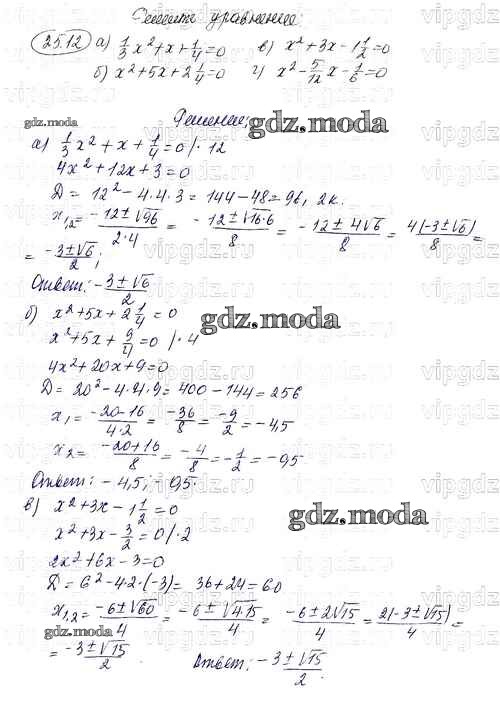 Решите уравнение:
25.12 а) 1/3 x² + x + 1/4 = 0 в) x² + 3x - 1 1/2 = 0
б) x² + 5x + 2 1/4 = 0 г) x² - 5/12 x - 1/6 = 0
gdz.moda
Решение:
gdz.moda
а) 1/3 x² + x + 1/4 = 0 /· 12
4x² + 12x + 3 = 0
D = 12² - 4·4·3 = 144 - 48 = 96, 2к.
x₁,₂ = (-12 ± √96)/(2·4) = (-12 ± √16·6)/8 = (-12 ± 4√6)/8 = 4(-3 ± √6)/8 =
= (-3 ± √6)/2;
Ответ: (-3 ± √6)/2
б) x² + 5x + 2 1/4 = 0
gdz.moda
x² + 5x + 9/4 = 0 /· 4
4x² + 20x + 9 = 0
D = 20² - 4·4·9 = 400 - 144 = 256
x₁ = (-20 - 16)/(4·2) = -36/8 = -9/2 = -4,5
x₂ = (-20 + 16)/8 = -4/8 = -1/2 = -0,5
Ответ: -4,5; -0,5.
в) x² + 3x - 1 1/2 = 0
gdz.moda
x² + 3x - 3/2 = 0 /· 2
2x² + 6x - 3 = 0
D = 6² - 4·2·(-3) = 36 + 24 = 60
x₁,₂ = (-6 ± √60)/4 = (-6 ± √4·15)/4 = (-6 ± 2√15)/4 = 2(-3 ± √15)/4 =
gdz.moda
= (-3 ± √15)/2. Ответ: (-3 ± √15)/2.